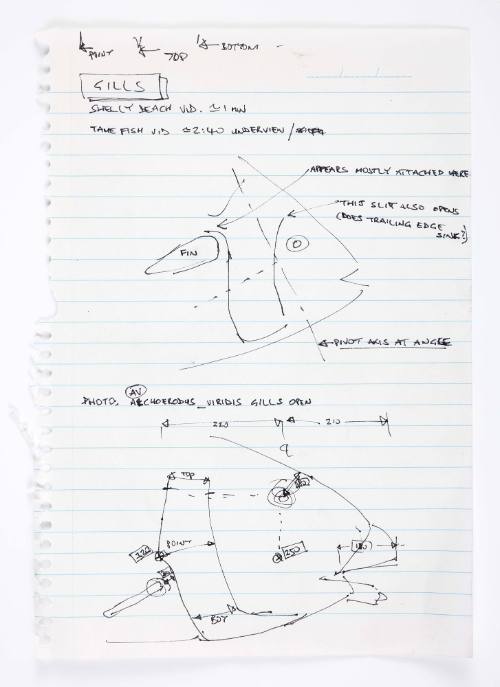 POINT
TOP
BOTTOM
GILLS
SHELLY BEACH VID. ≃ 1 MIN
TAME FISH VID ≃ 2:40 UNDERVIEW /
APPEARS MOSTLY ATTACHED HERE
THIS SLIT ALSO OPENS
(DOES TRAILING EDGE
SINK?)
FIN
PIVOT AXIS AT ANGLE
AV
PHOTO, ARCHOERODUS_VIRIDIS GILLS OPEN
210
TOP
POINT
250
BOT